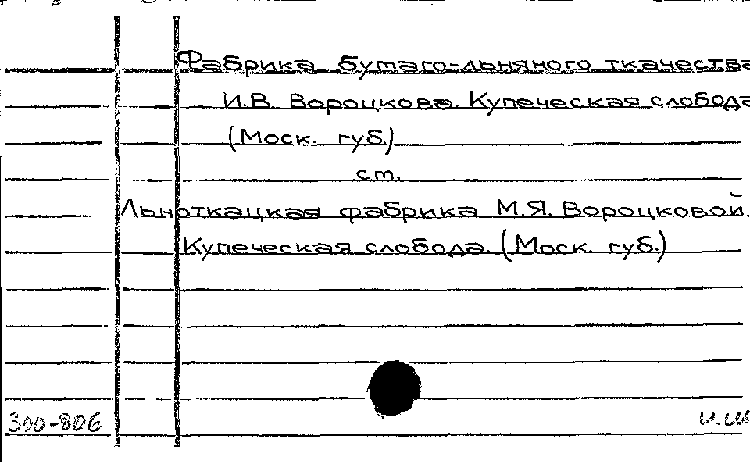 Фабрика бумаго-льняного ткачества
И.В. Вороцкова. Купеческая слобода
(Моск. губ.)
ст.
Льноткацкая фабрика М.Я. Вороцковой.
Купеческая слобода. (Моск. губ.)
300-806